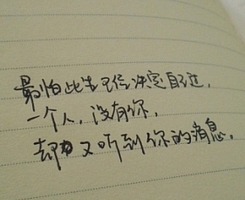 最怕此生已经决定自己过，
一个人，没有你，
却又听到你的消息。